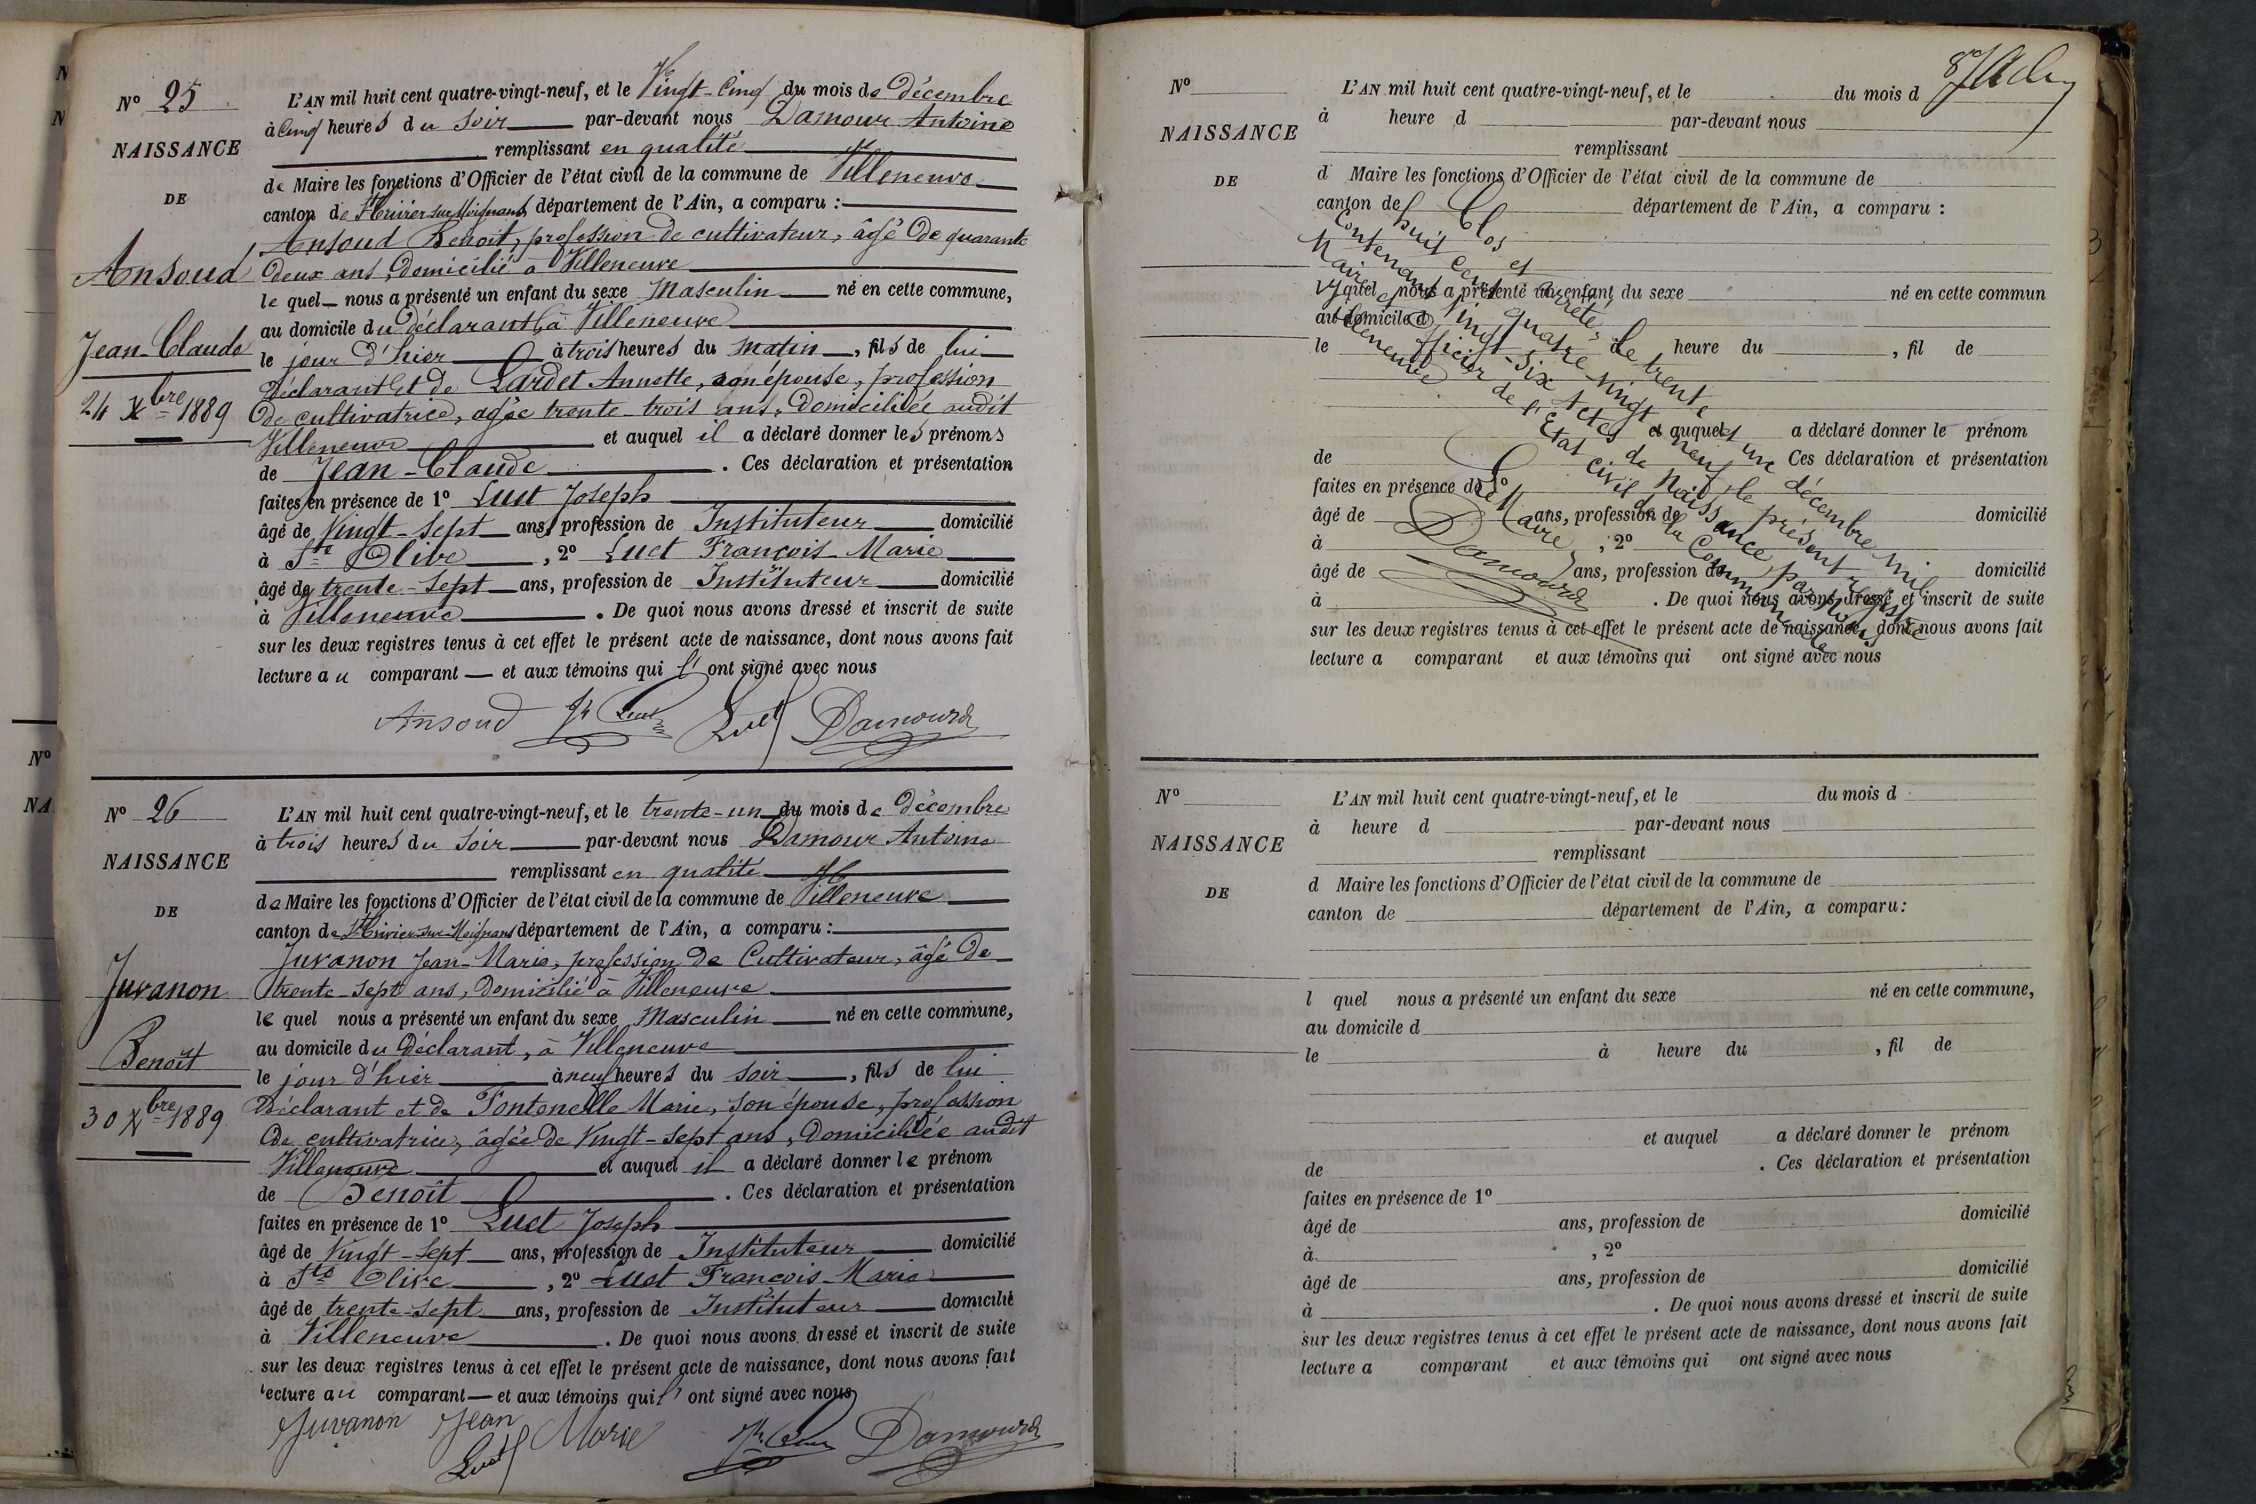 N
N
Nº
NA
Nº 25
NAISSANCE
DE
Ansoud
Jean-Claude
24 Xbre 1889
L'AN mil huit cent quatre-vingt-neuf, et le Vingt-Cinq du mois de Décembre
à Cinq heures du Soir par-devant nous Damour Antoine
remplissant en qualité
de Maire les fonctions d'Officier de l'état civil de la commune de Villeneuve
canton de St Trivier sur Moignans, département de l'Ain, a comparu :
Ansoud Benoit, profession de cultivateur, âgé de quarante
deux ans, Domicilié à Villeneuve
le quel nous a présenté un enfant du sexe Masculin né en cette commune,
au domicile du Déclarant, à Villeneuve
le jour d'hier à trois heures du matin, fils de lui
Déclarant et de Lardet Annette, son épouse, profession
de cultivatrice, agée trente-trois ans, Domiciliée audit
Villeneuve et auquel il a déclaré donner les prénoms
de Jean-Claude. Ces déclaration et présentation
faites en présence de 1º Luct Joseph
âgé de Vingt-Sept ans, profession de Instituteur domicilié
à Ste Olive, 2º Luct François-Marie
âgé de trente-sept ans, profession de Instituteur domicilié
à Villeneuve. De quoi nous avons dressé et inscrit de suite
sur les deux registres tenus à cet effet le présent acte de naissance, dont nous avons fait
lecture au comparant et aux témoins qui l' ont signé avec nous
Ansoud Luct Damour
Nº 26
NAISSANCE
DE
Juvanon
Benoît
30 Xbre 1889
L'AN mil huit cent quatre-vingt-neuf, et le trente-un du mois de Décembre
à trois heures du Soir par-devant nous Damour Antoine
remplissant en qualité
de Maire les fonctions d'Officier de l'état civil de la commune de Villeneuve
canton de St Trivier-sur-Moignans département de l'Ain, a comparu :
Juvanon Jean-Marie, profession de Cultivateur, âgé de
trente-sept ans, Domicilié à Villeneuve
le quel nous a présenté un enfant du sexe Masculin né en cette commune,
au domicile du Déclarant, à Villeneuve
le jour d'hier à neuf heures du soir, fils de lui
Déclarant et de Fontenelle Marie, son épouse, profession
de cultivatrice, âgée de Vingt-sept ans, Domiciliée audit
Villeneuve et auquel il a déclaré donner le prénom
de Benoît. Ces déclaration et présentation
faites en présence de 1º Luct Joseph
âgé de Vingt-Sept ans, profession de Instituteur domicilié
à Ste Olive, 2º Luct François-Marie
âgé de trente-sept ans, profession de Instituteur domicilié
à Villeneuve. De quoi nous avons dressé et inscrit de suite
sur les deux registres tenus à cet effet le présent acte de naissance, dont nous avons fait
lecture au comparant et aux témoins qui l' ont signé avec nous
Juvanon Jean Marie Luct Damour
Nº
NAISSANCE
DE
L'AN mil huit cent quatre-vingt-neuf, et le du mois d
à heure d par-devant nous
remplissant
d Maire les fonctions d'Officier de l'état civil de la commune de
canton de département de l'Ain, a comparu :
l quel nous a présenté un enfant du sexe né en cette commun
au domicile d
le à heure du , fil de
et auquel a déclaré donner le prénom
de Ces déclaration et présentation
faites en présence de 1º
âgé de ans, profession de domicilié
à , 2º
âgé de ans, profession de domicilié
à . De quoi nous avons dressé et inscrit de suite
sur les deux registres tenus à cet effet le présent acte de naissance, dont nous avons fait
lecture a comparant et aux témoins qui ont signé avec nous
Clos et arrêté le trente et un décembre mil
huit cent quatre vingt neuf le présent registre
Contenant Vingt-Six Actes de Naissance, par Nous
Maire et Officier de l'Etat civil de la Commune de
Villeneuve
Le Maire,
Damour
Nº
NAISSANCE
DE
L'AN mil huit cent quatre-vingt-neuf, et le du mois d
à heure d par-devant nous
remplissant
d Maire les fonctions d'Officier de l'état civil de la commune de
canton de département de l'Ain, a comparu :
l quel nous a présenté un enfant du sexe né en cette commune,
au domicile d
le à heure du , fil de
et auquel a déclaré donner le prénom
de . Ces déclaration et présentation
faites en présence de 1º
âgé de ans, profession de domicilié
à , 2º
âgé de ans, profession de domicilié
à . De quoi nous avons dressé et inscrit de suite
sur les deux registres tenus à cet effet le présent acte de naissance, dont nous avons fait
lecture a comparant et aux témoins qui ont signé avec nous